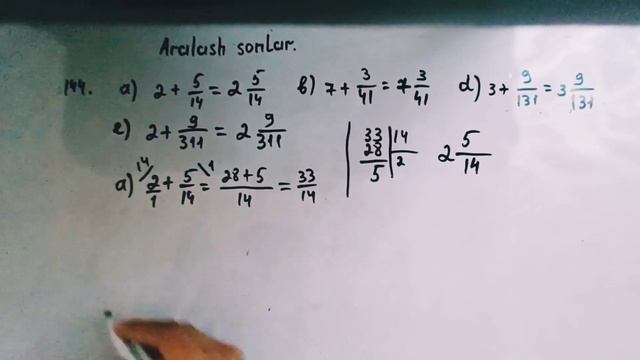 Aralash sonlar.
144. a) 2 + 5/14 = 2 5/14 b) 7 + 3/41 = 7 3/41 d) 3 + 9/131 = 3 9/131
e) 2 + 9/311 = 2 9/311
a) 2/1 \14 + 5/14 \1 = 28+5/14 = 33/14 | 33 | 14 28 | 2 5 2 5/14